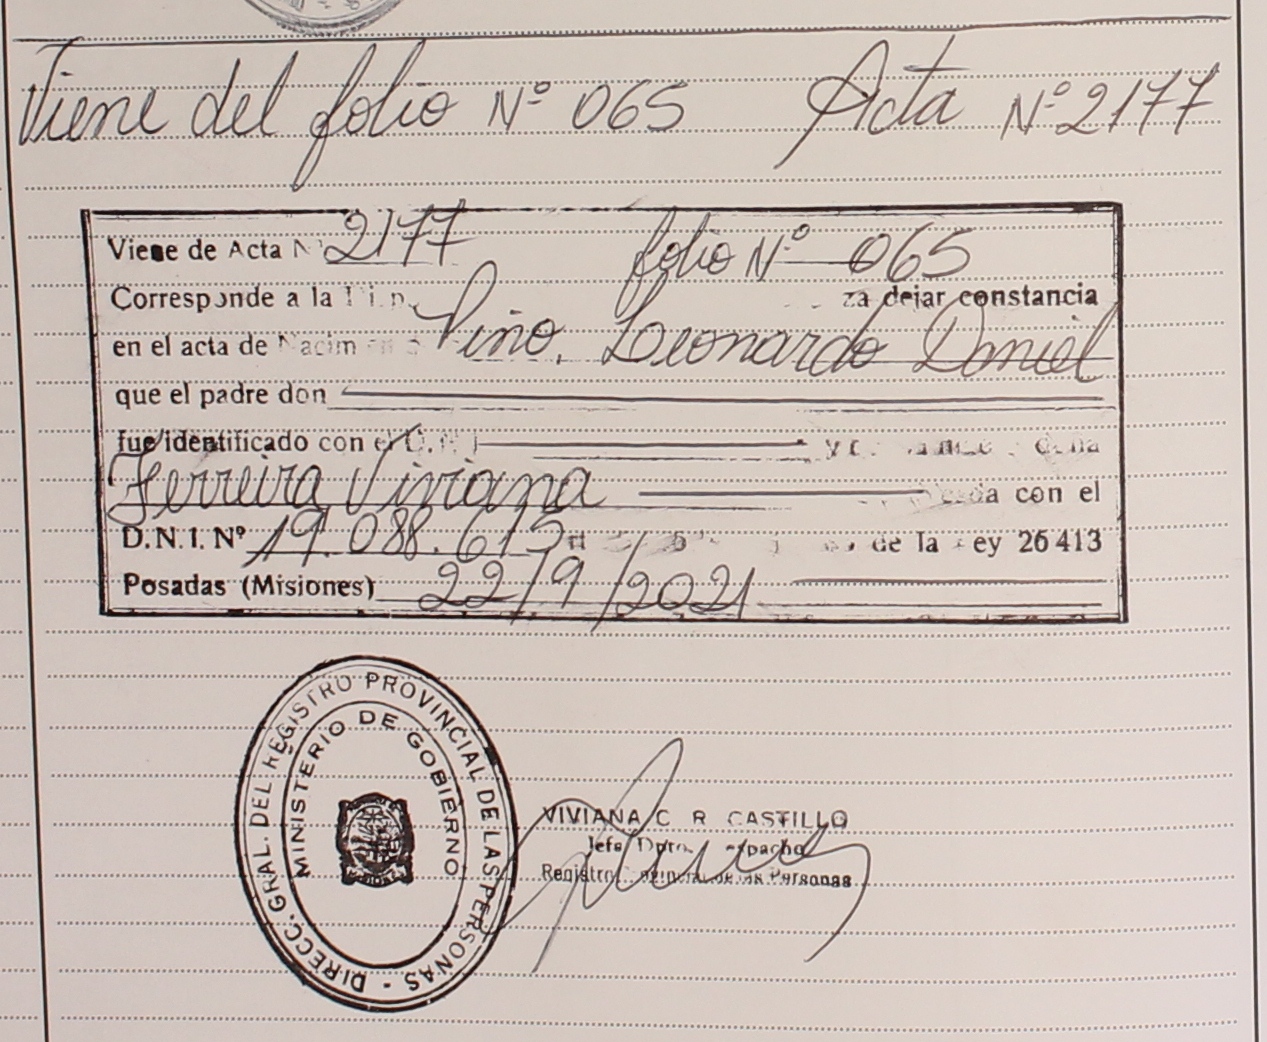 Viene del folio Nº 065 Acta Nº 2177
Viene de Acta Nº 2177 folio Nº 065
Corresponde a la dejar constancia
en el acta de Nacim Leonardo Daniel
que el padre don
fue identificado con el D.N.I
Ferreira Viviana con el
D.N.I. Nº 19.088.615 de la Ley 26413
Posadas (Misiones) 22/9/2021
DIRECC. GRAL. DEL REGISTRO PROVINCIAL DE LAS PERSONAS -
MINISTERIO DE GOBIERNO
VIVIANA C R CASTILLO
Jefe Dpto.
de las Personas